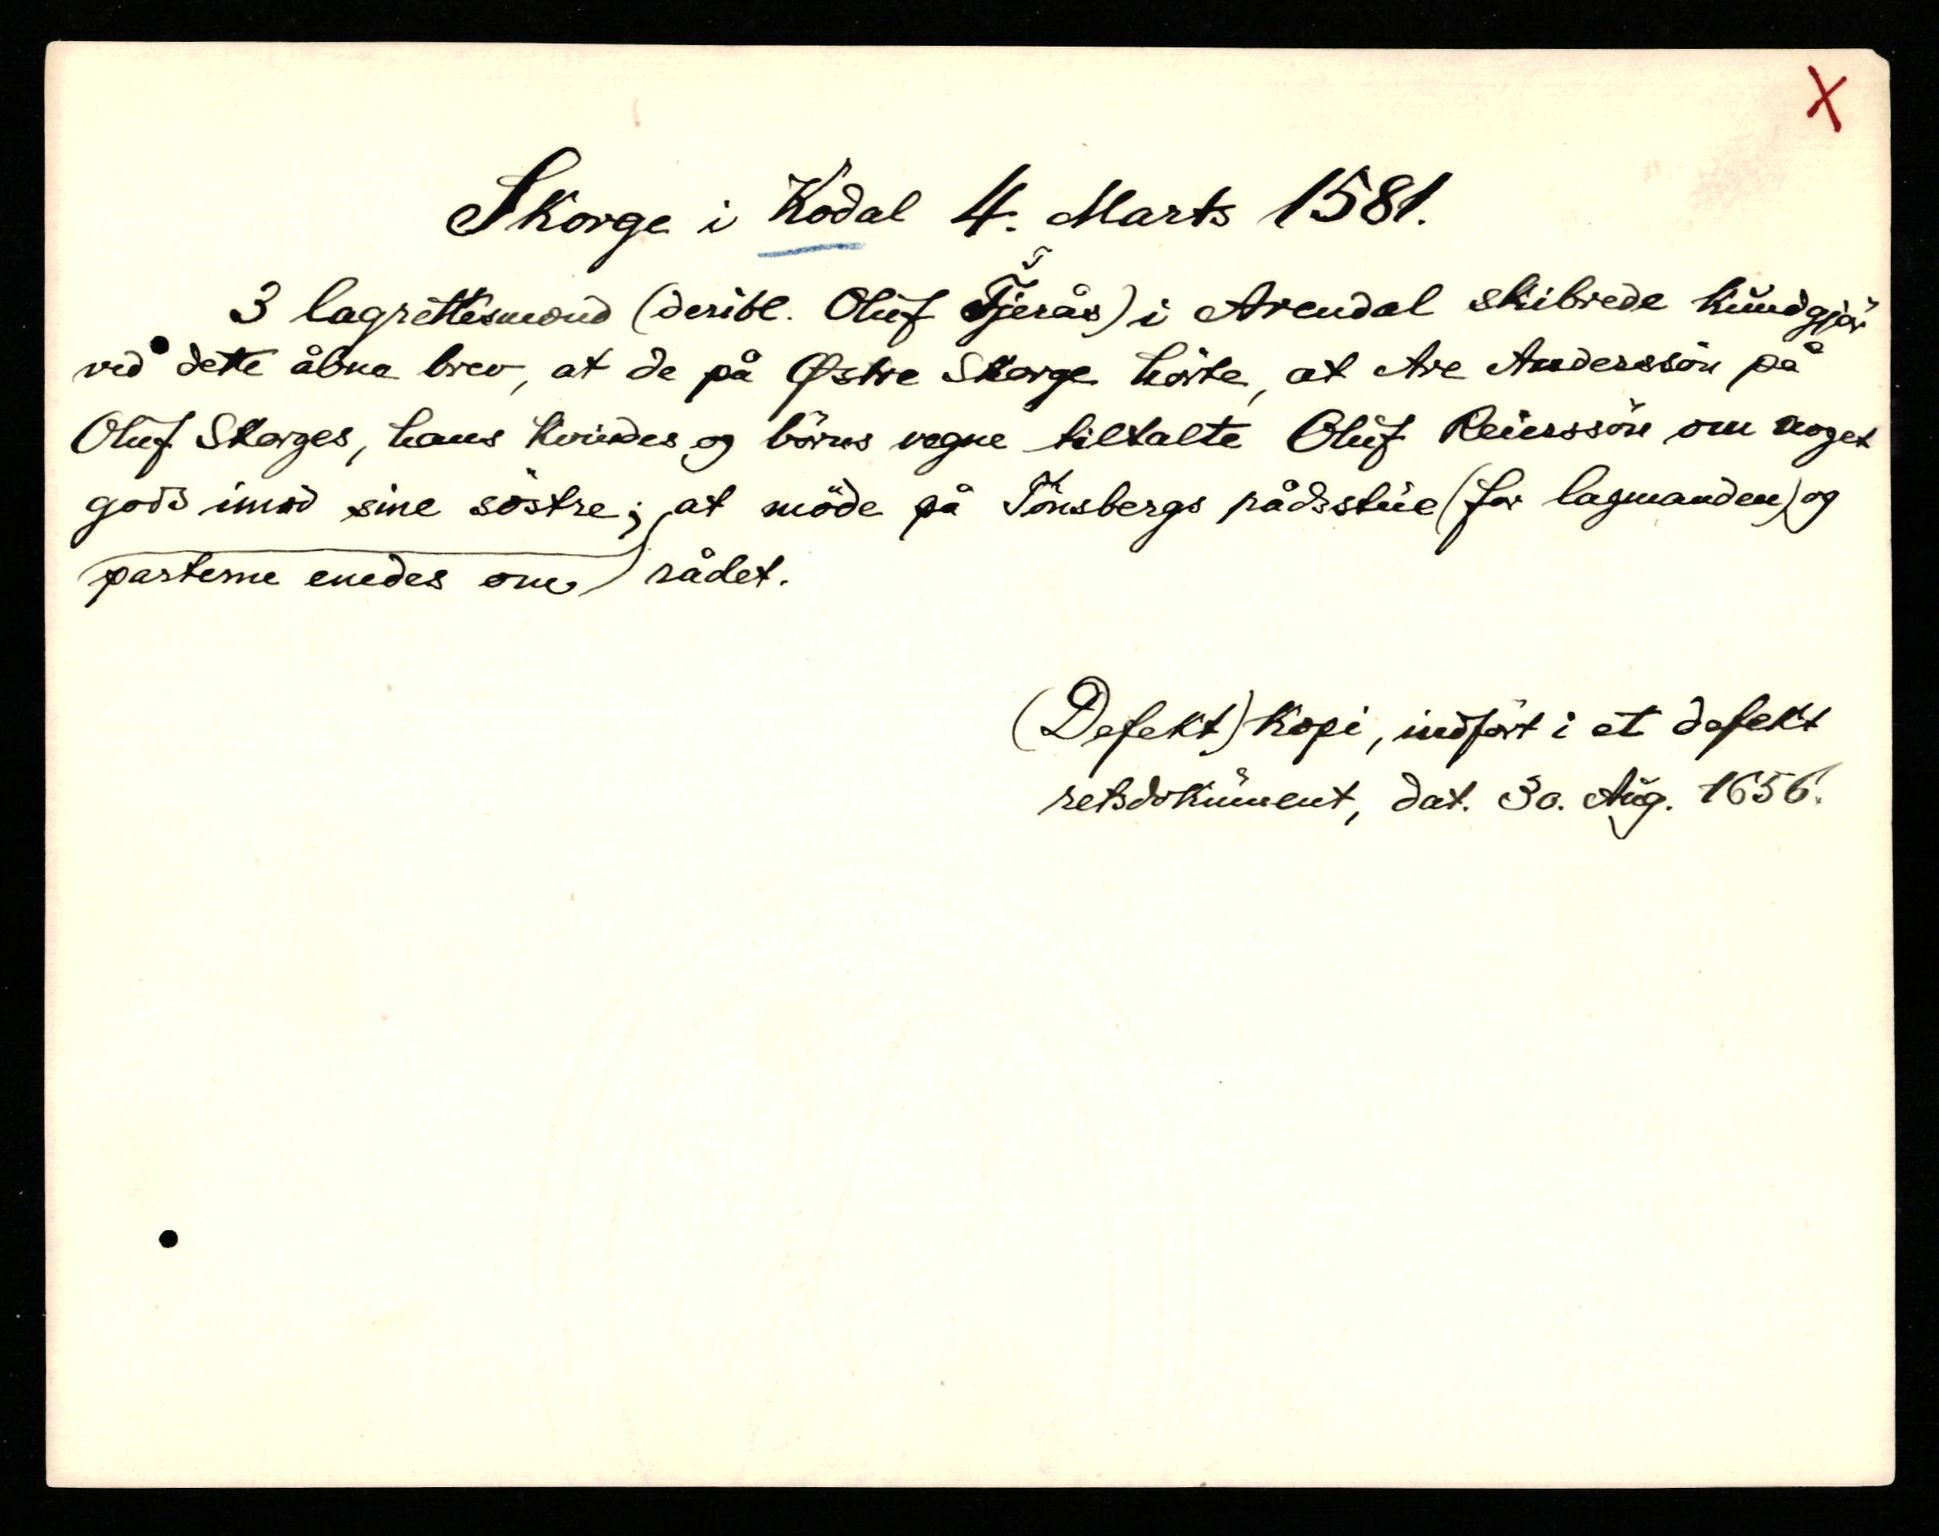 X
Skorge i Kodal 4. Marts 1581.
3 lagrettesmænd (deribl. Oluf Tjerås) i Arendal skibrede kundgjör
ved dette åbne brev, at de på Østre Skorge hörte, at Are Anderssön på
Oluf Skorges, hans kvindes og börns vegne tiltalte Oluf Reierssön om noget
gods imod sine söstre; at möde på Tönsbergs rådsstue (for lagmanden) og
parterne enedes om rådet.
(Defekt) kopi, indfört i et defekt
retsdokument, dat. 30. Aug. 1656.